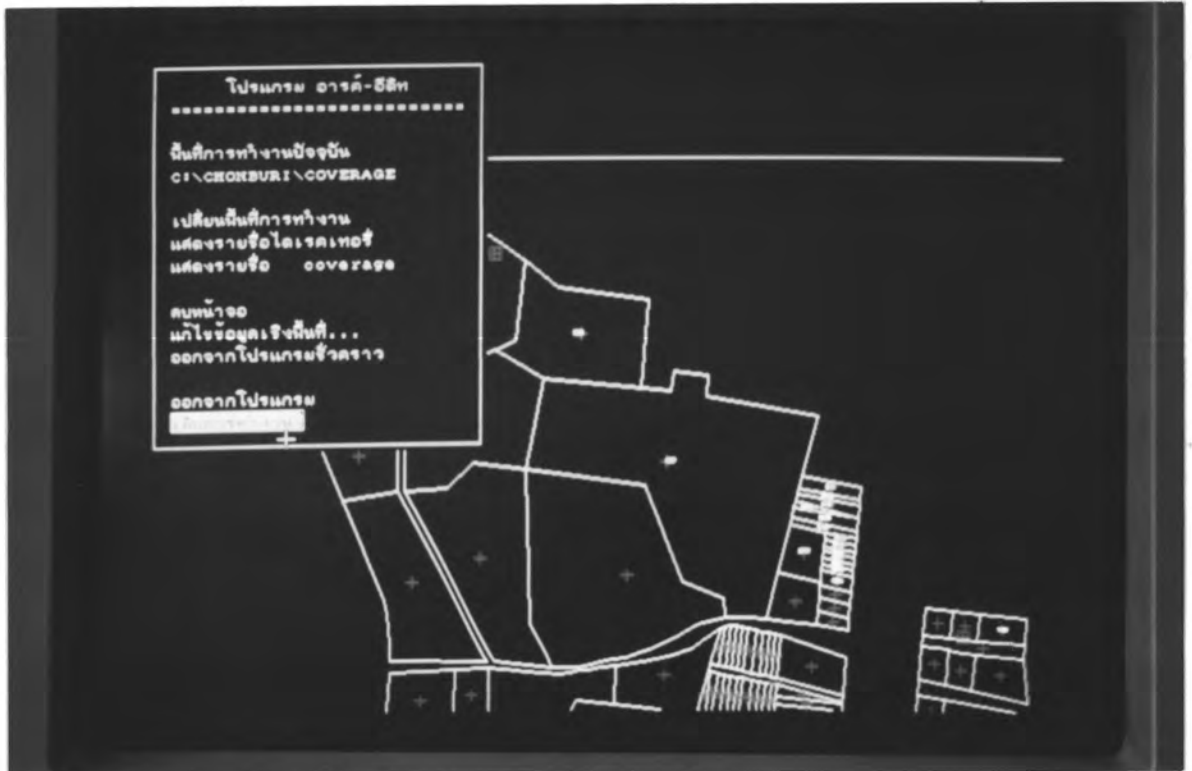 โปรแกรม อารค์-อีดิท
พื้นที่การทำงานปัจจุบัน
C:\CHONBURI\COVERAGE
เปลี่ยนพื้นที่การทำงาน
แสดงรายชื่อไดเรคเทอรี่
แสดงรายชื่อ coverage
ลบหน้าจอ
แก้ไขข้อมูลเชิงพื้นที่...
ออกจากโปรแกรมชั่วคราว
ออกจากโปรแกรม